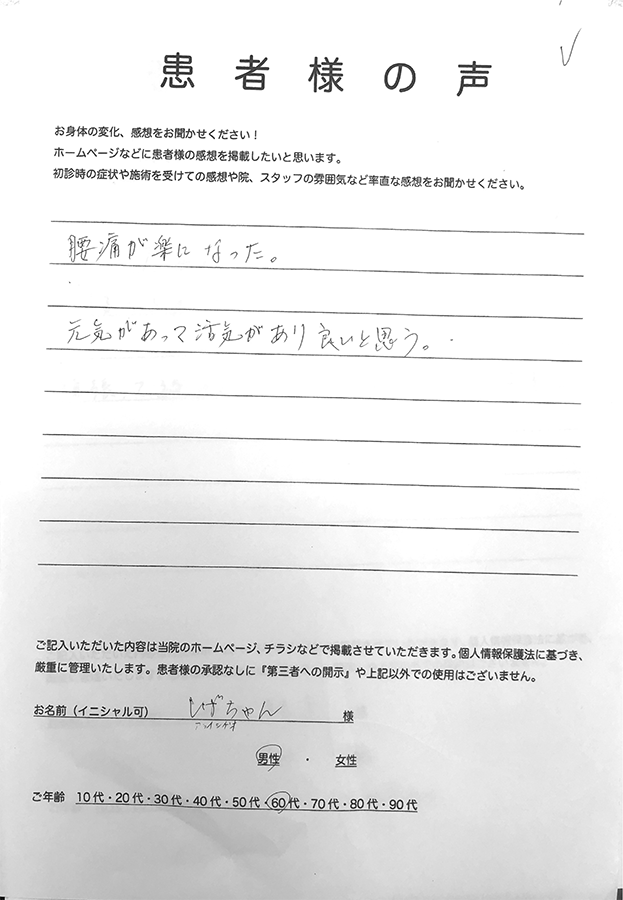 患者様の声
お身体の変化、感想をお聞かせください！
ホームページなどに患者様の感想を掲載したいと思います。
初診時の症状や施術を受けての感想や院、スタッフの雰囲気など率直な感想をお聞かせください。
腰痛が楽になった。
元気があって活気があり良いと思う。
ご記入いただいた内容は当院のホームページ、チラシなどで掲載させていただきます。個人情報保護法に基づき、
厳重に管理いたします。患者様の承認なしに『第三者への開示』や上記以外での使用はございません。
お名前（イニシャル可） しげちゃん 様
男性 ・ 女性
ご年齢 10代・20代・30代・40代・50代・60代・70代・80代・90代